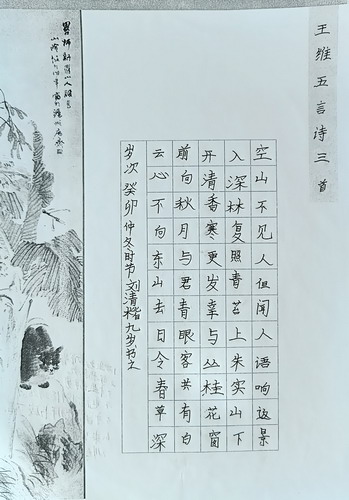 王维五言诗三首
空山不见人但闻人语响返景
入深林复照青苔上朱实山下
开清香寒更发幸与丛桂花窗
前向秋月与君青眼客共有白
云心不向东山去日令春草深
岁次癸卯仲冬时节刘清楷九岁书之